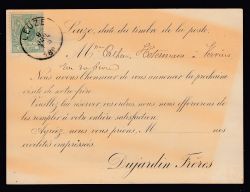 LEUZE
Leuze, date du timbre de la poste,
M
à Verviers
Nous avons l'honneur de vous annoncer la prochaine
visite de notre frère
Veuillez lui réserver vos ordres, nous nous efforcerons de
les remplir à votre entière satisfaction.
Agréez, nous vous prions, M nos
civilités empressées.
Dujardin Frères